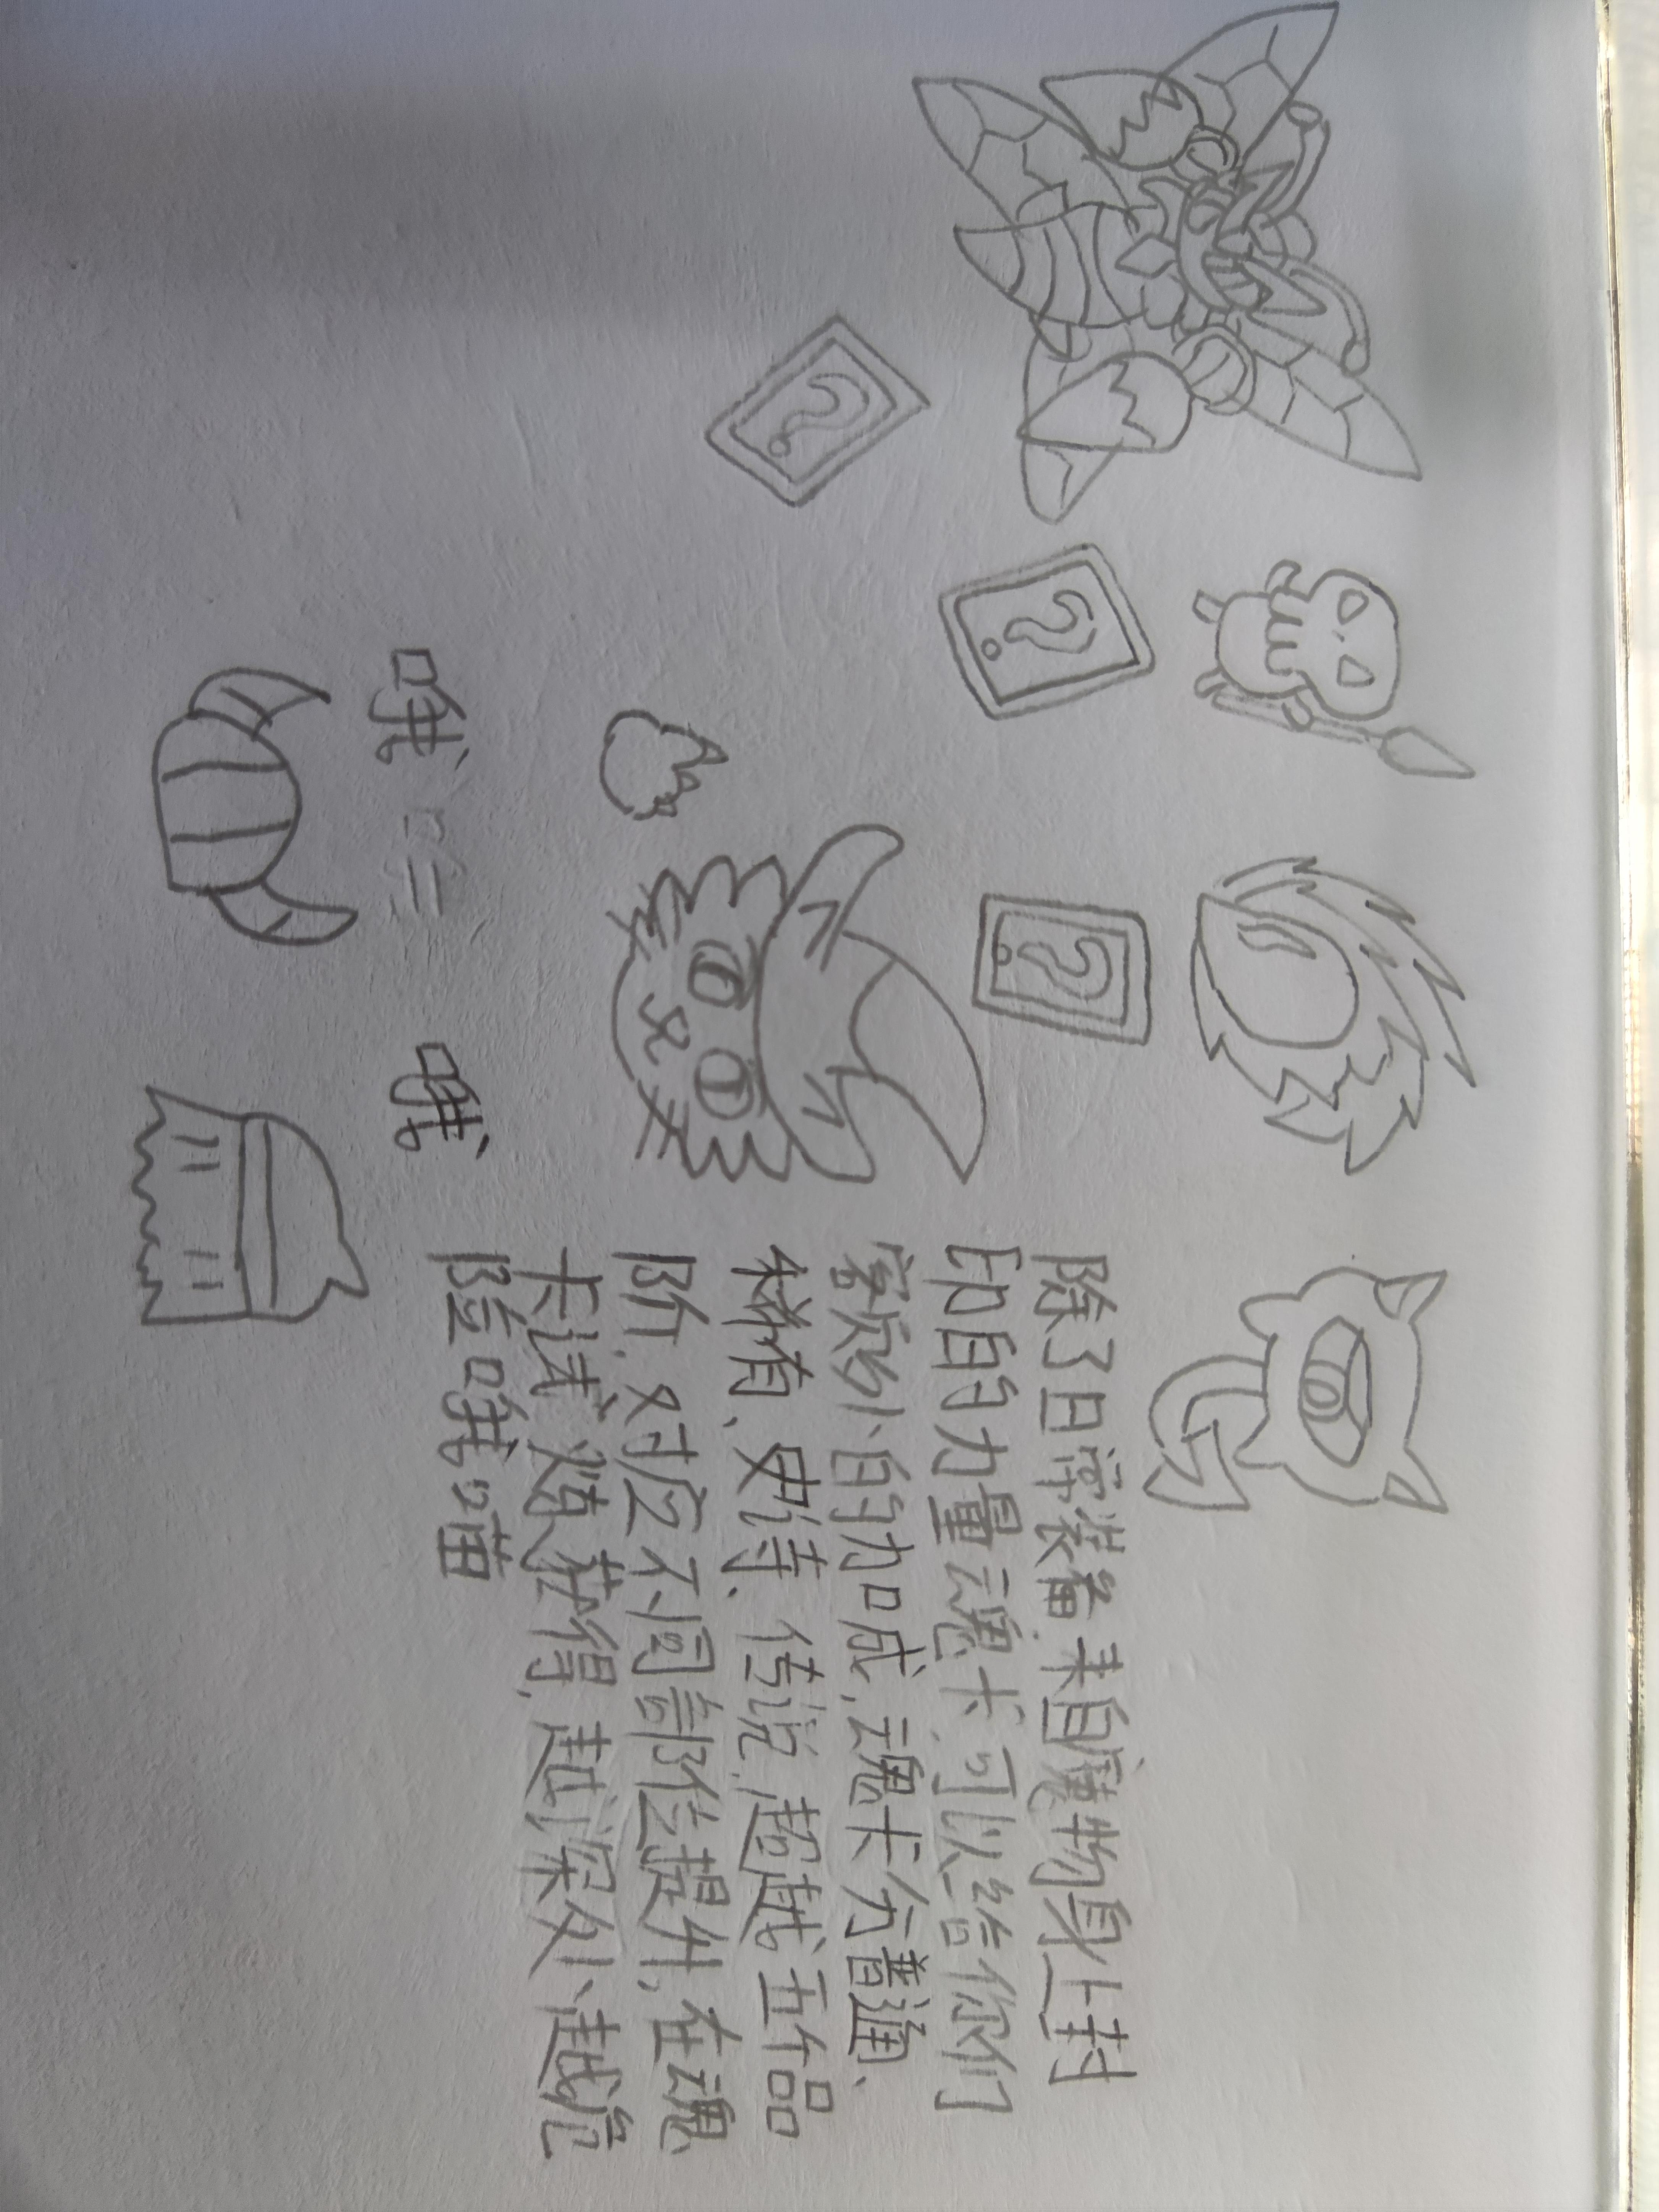 ?
?
?
除了日常装备,来自魔物身上封
印的力量魂卡,可以给你们
额外的加成,魂卡分普通、
稀有、史诗、传说、超越五个品
阶,对应不同部位提升,在魂
卡试炼获得,越深处越危
险哦喵
哦
哦